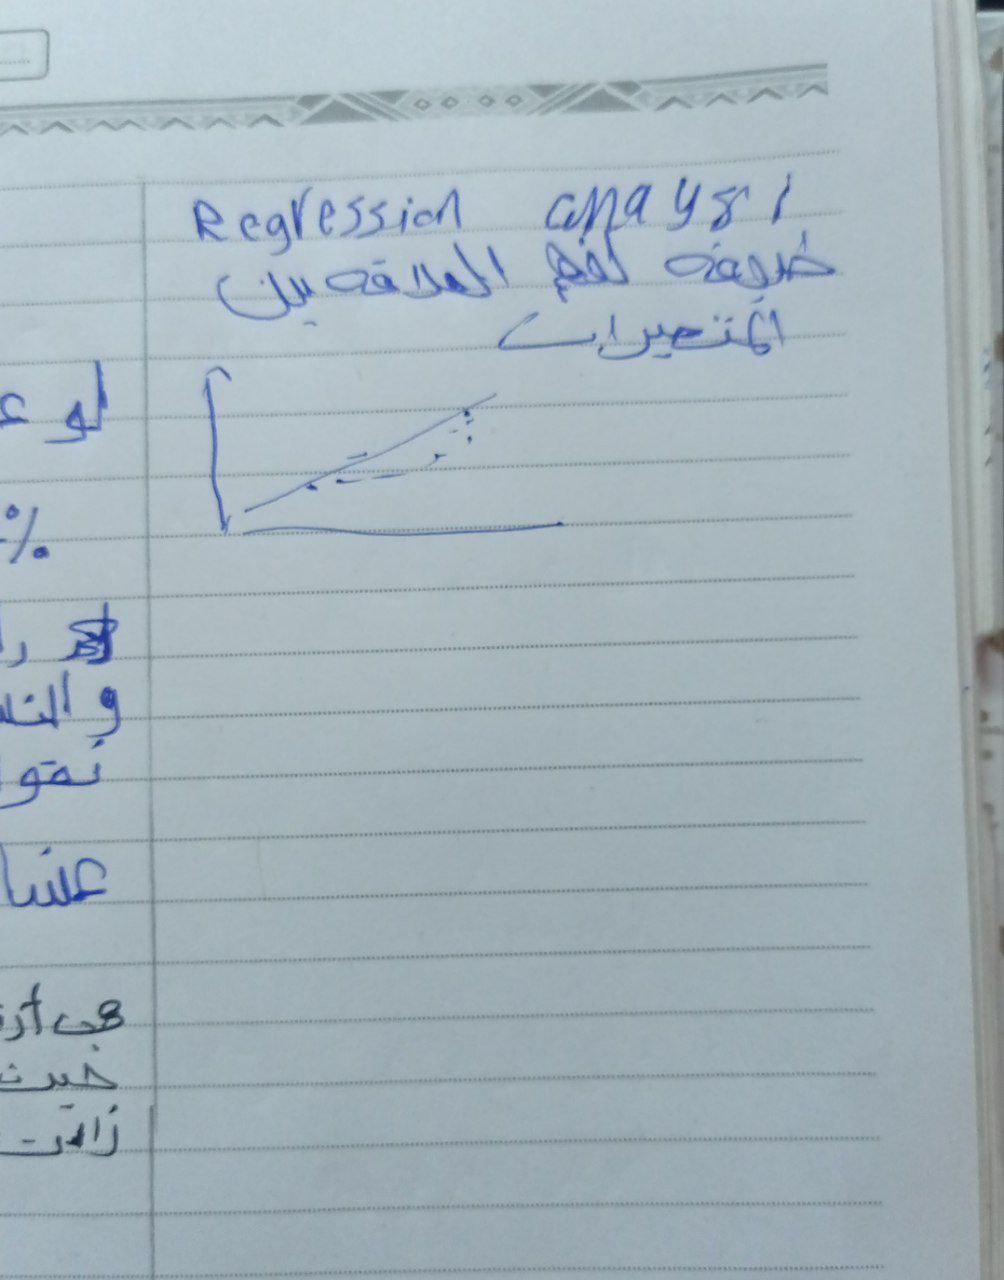 Regression anaysi
طريقة لفهم العلاقة بين
المتغيرات
لو ع
%
را
و الن
نقو
عشا
هي
زادت